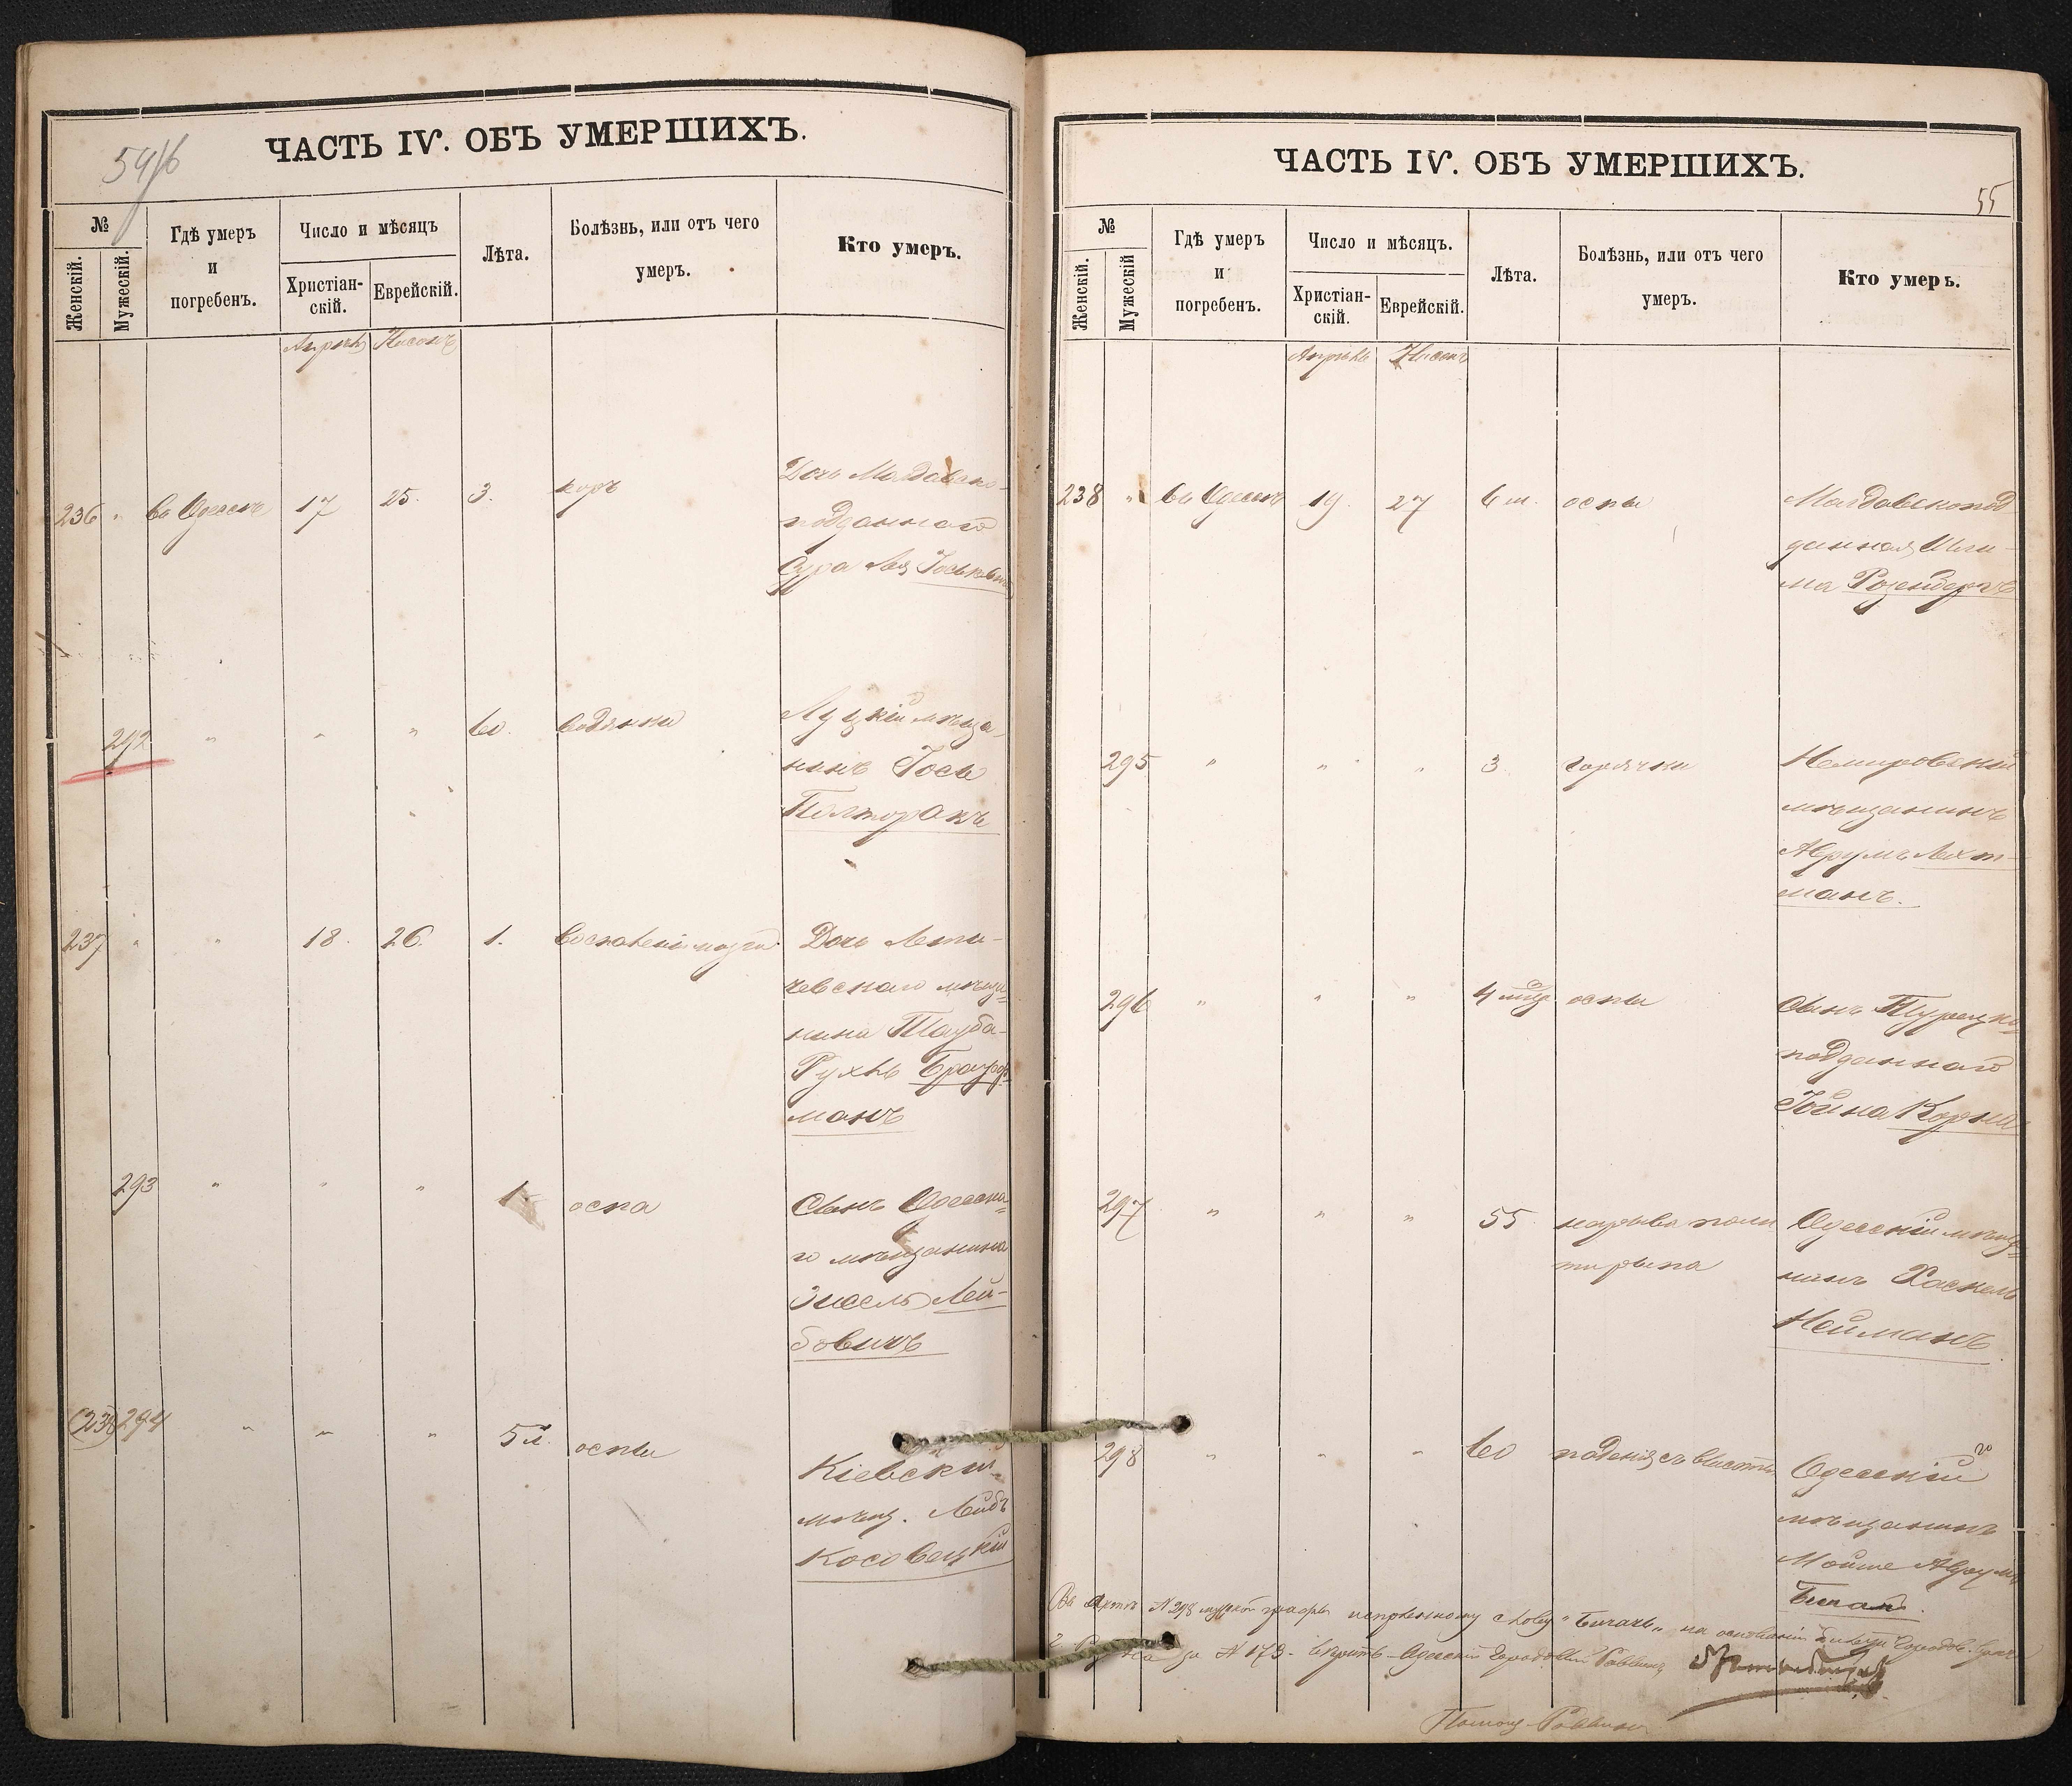 54/6
ЧАСТЬ IV. ОБЪ УМЕРШИХЪ.
№
Женскій.
Мужескій.
Гдѣ умеръ
и
погребенъ.
Число и мѣсяцъ
Христіан-
скій.
Еврейскій.
Лѣта.
Болѣзнь, или отъ чего
умеръ.
Кто умеръ.
Апрѣль Нисонъ
236 " Въ Одессѣ 17 25. 3. корь
Дочь Молдавско-
подданнаго
Сура Лея Госьковичъ
292 " " " 60. водянки
Луцкій мѣща-
нинъ Іось
Полторакъ
237 " " 18. 26. 1. Воспаленіи мозга
Дочь Лети-
чевскаго мѣща-
нина Тауба-
Рухль Брауф-
манъ
293 " " " 1. оспа
Сынъ Одесска-
го мѣщанина
Зисель Лей-
бовичъ
(238) 294 " " " 5 оспы
Кіевскій
мѣщ. Лейбъ
Косовецкій
ЧАСТЬ IV. ОБЪ УМЕРШИХЪ.
55
№
Женскій.
Мужескій
Гдѣ умеръ
и
погребенъ.
Число и мѣсяцъ.
Христіан-
скій.
Еврейскій.
Лѣта.
Болѣзнь, или отъ чего
умеръ.
Кто умеръ.
Апрѣль Нисонъ
238 " Въ Одессѣ 19. 27 6 м. оспы
Молдавскопод
данная
ма Розенбергъ
295 " " " 3 горячки
Немировскій
мѣщанинъ
Аврумъ Лехт-
манъ.
296 " " " 4 оспы
Сынъ Турецко
подданнаго
Іойна Корня
297 " " " 55.
Одесскій мѣща-
нинъ Хаскель
Нейманъ
298 " " " 60 паденія съ высоты
Одесскій
мѣщанинъ
Мойше Аврумъ
Бигалъ.
Въ актѣ № 298 мужской графы исправленному слову на основаніи
за № 173. вѣрить. Одесскій Городовой Раввинъ
Помощ. Раввина